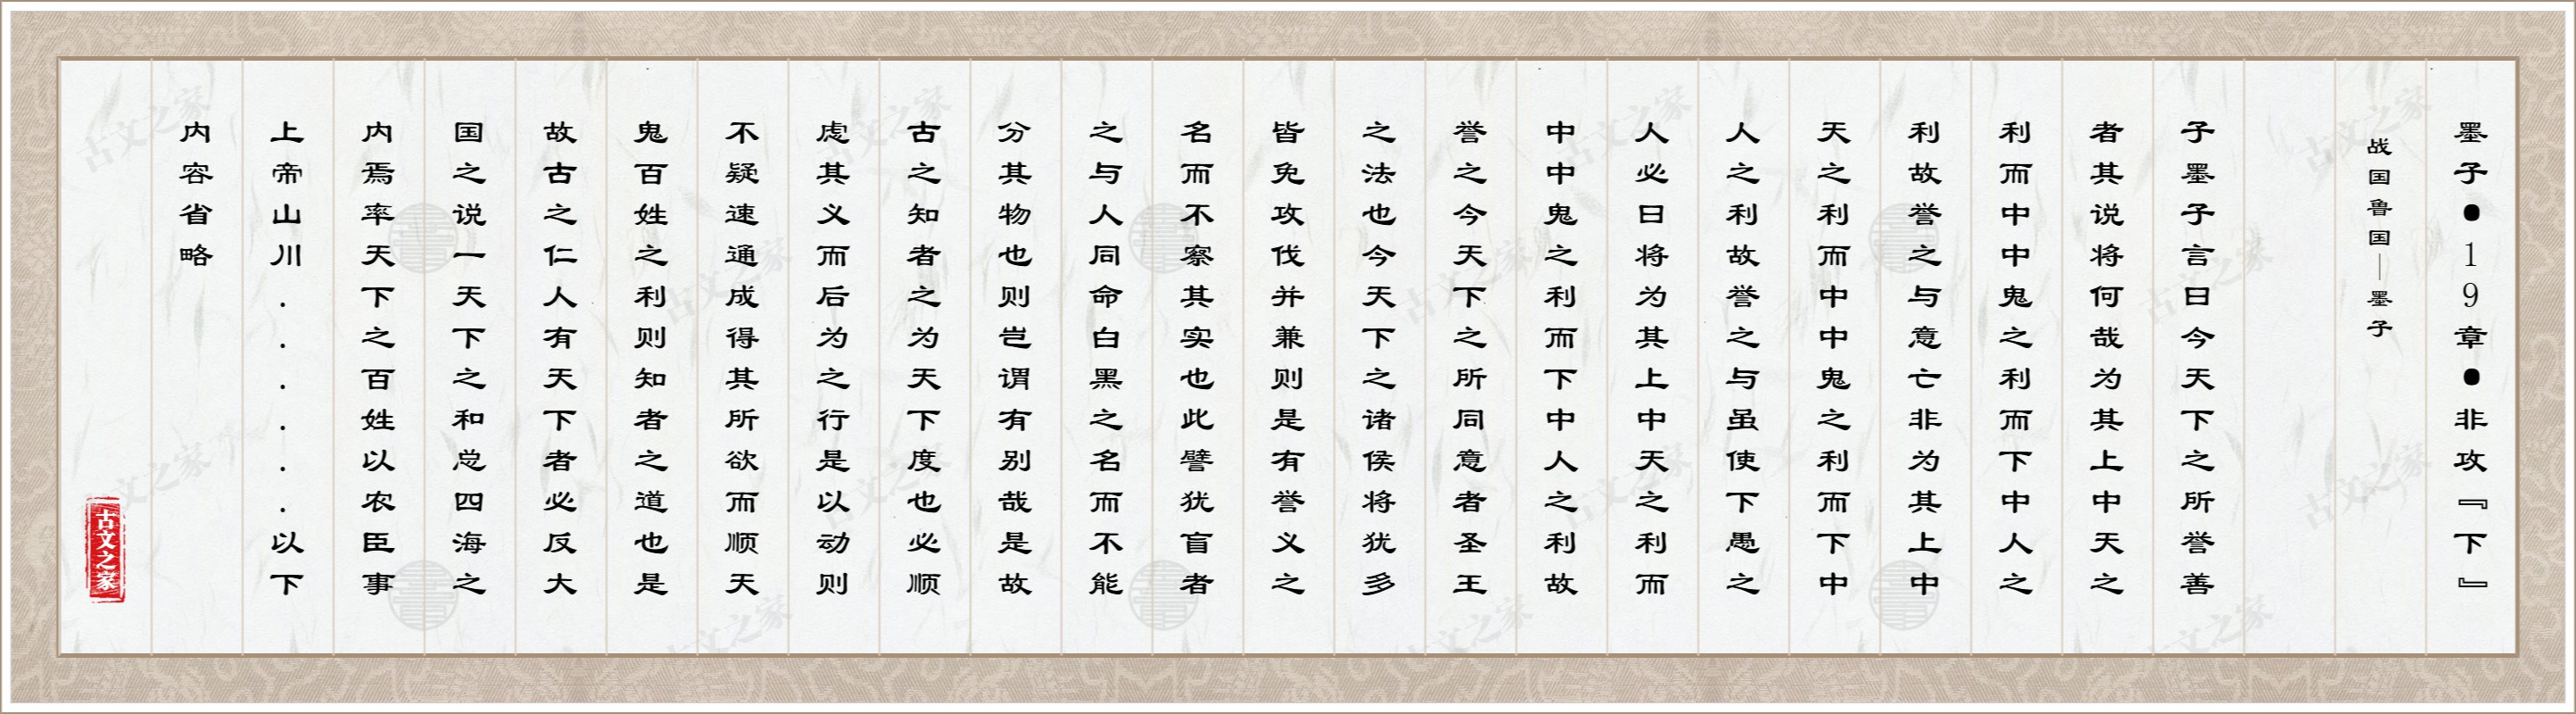 墨子●19章●非攻『下』
战国鲁国｜墨子
子墨子言曰今天下之所誉善
者其说将何哉为其上中天之
利而中中鬼之利而下中人之
利故誉之与意亡非为其上中
天之利而中中鬼之利而下中
人之利故誉之与虽使下愚之
人必曰将为其上中天之利而
中中鬼之利而下中人之利故
誉之今天下之所同意者圣王
之法也今天下之诸侯将犹多
皆免攻伐并兼则是有誉义之
名而不察其实也此譬犹盲者
之与人同命白黑之名而不能
分其物也则岂谓有别哉是故
古之知者之为天下度也必顺
虑其义而后为之行是以动则
不疑速通成得其所欲而顺天
鬼百姓之利则知者之道也是
故古之仁人有天下者必反大
国之说一天下之和总四海之
内焉率天下之百姓以农臣事
上帝山川......以下
内容省略
古文之家